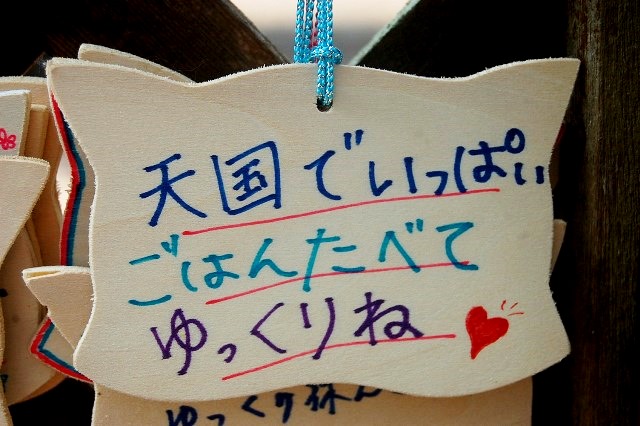 天国でいっぱい
ごはんたべて
ゆっくりね
ゆっくり休ん